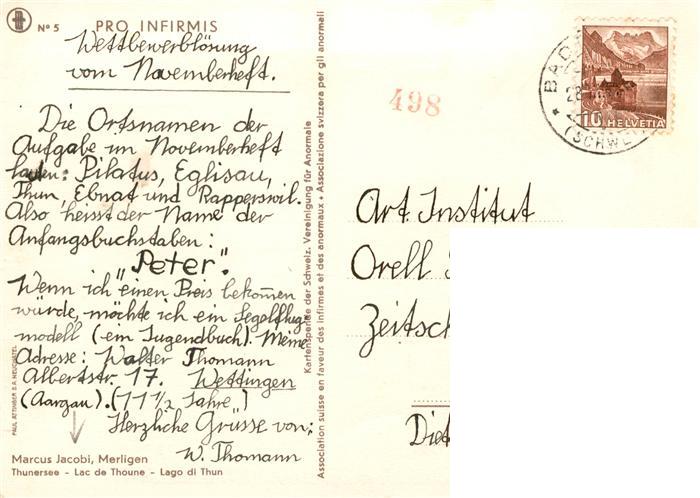 Nº 5 PRO INFIRMIS
Wettbewerblösung
vom Novemberheft.
Die Ortsnamen der
Aufgabe im Novemberheft
lauten: Pilatus, Eglisau,
Thun, Ebnat und Rapperswil.
Also heisst der Name der
Anfangsbuchstaben:
"Peter".
Wenn ich einen Preis bekommen
würde, möchte ich ein Segelflug-
modell (ein Jugendbuch). Meine
Adresse: Walter Thomann
Albertstr. 17. Wettingen
(Aargau). (11 1/2 Jahre)
Herzliche Grüsse von:
W. Thomann
Marcus Jacobi, Merligen
Thunersee - Lac de Thoune - Lago di Thun
PAUL ATTINGER S.A. NEUCHATEL
Association suisse en faveur des infirmes et des anormaux • Associazione svizzera per gli anormali
Kartenspende der Schweiz. Vereinigung für Anormale
498
BADE
28
(SCHWE
10 HELVETIA
Art. Institut
Orell
Zeitsch
Diet